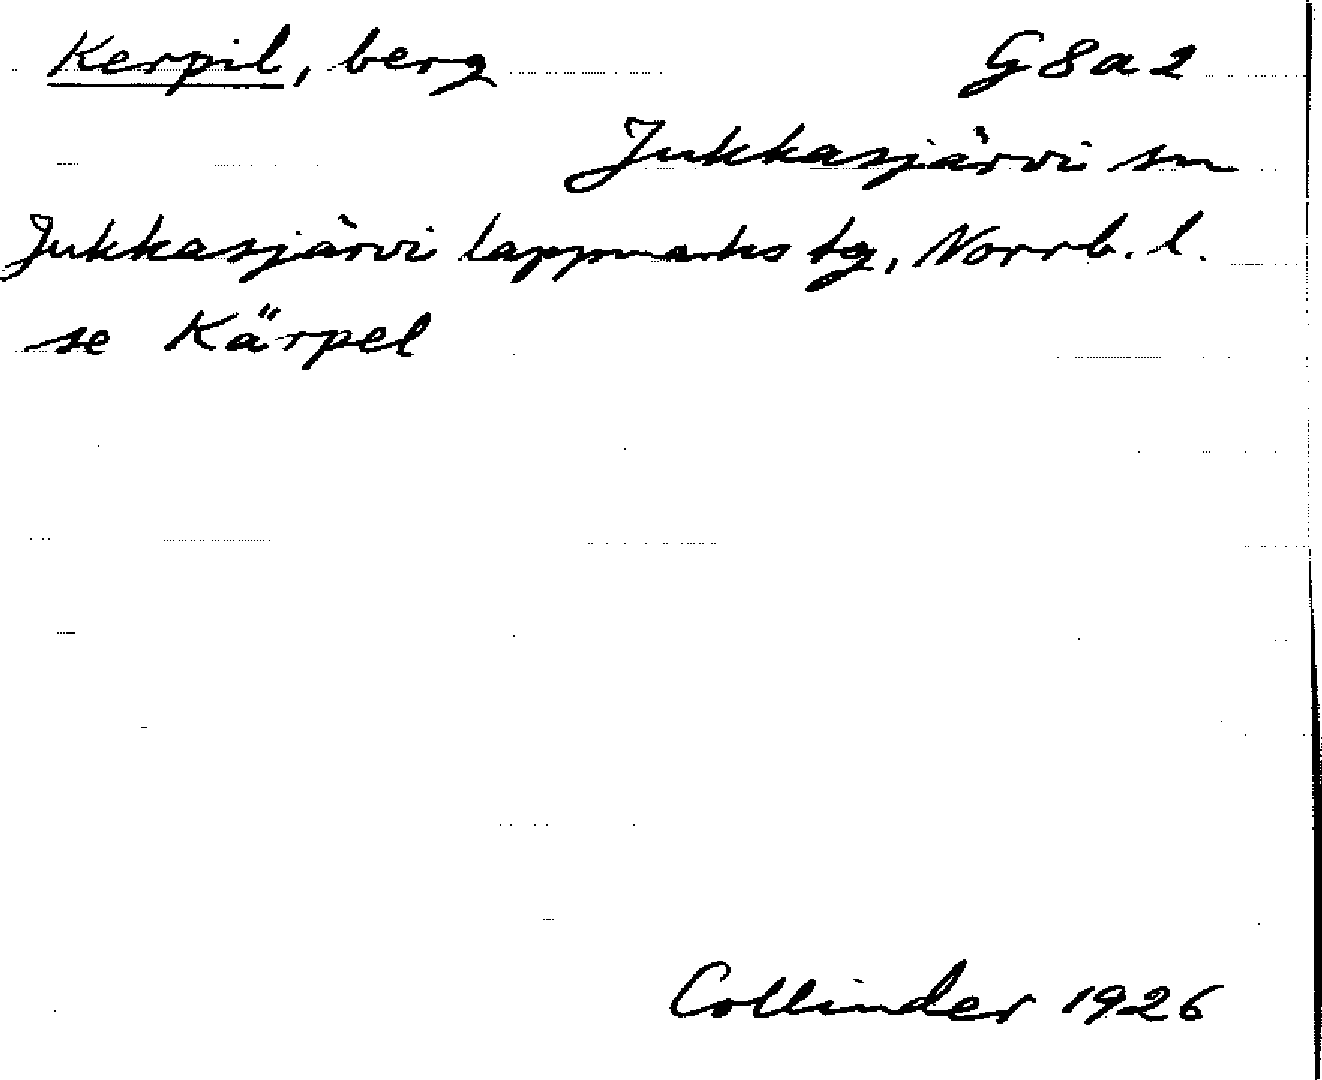 Kerpil, berg G8a2
Jukkasjärvi sn
Jukkasjärvi lappmarks tg, Norrb. l.
se Kärpel
Collinder 1926